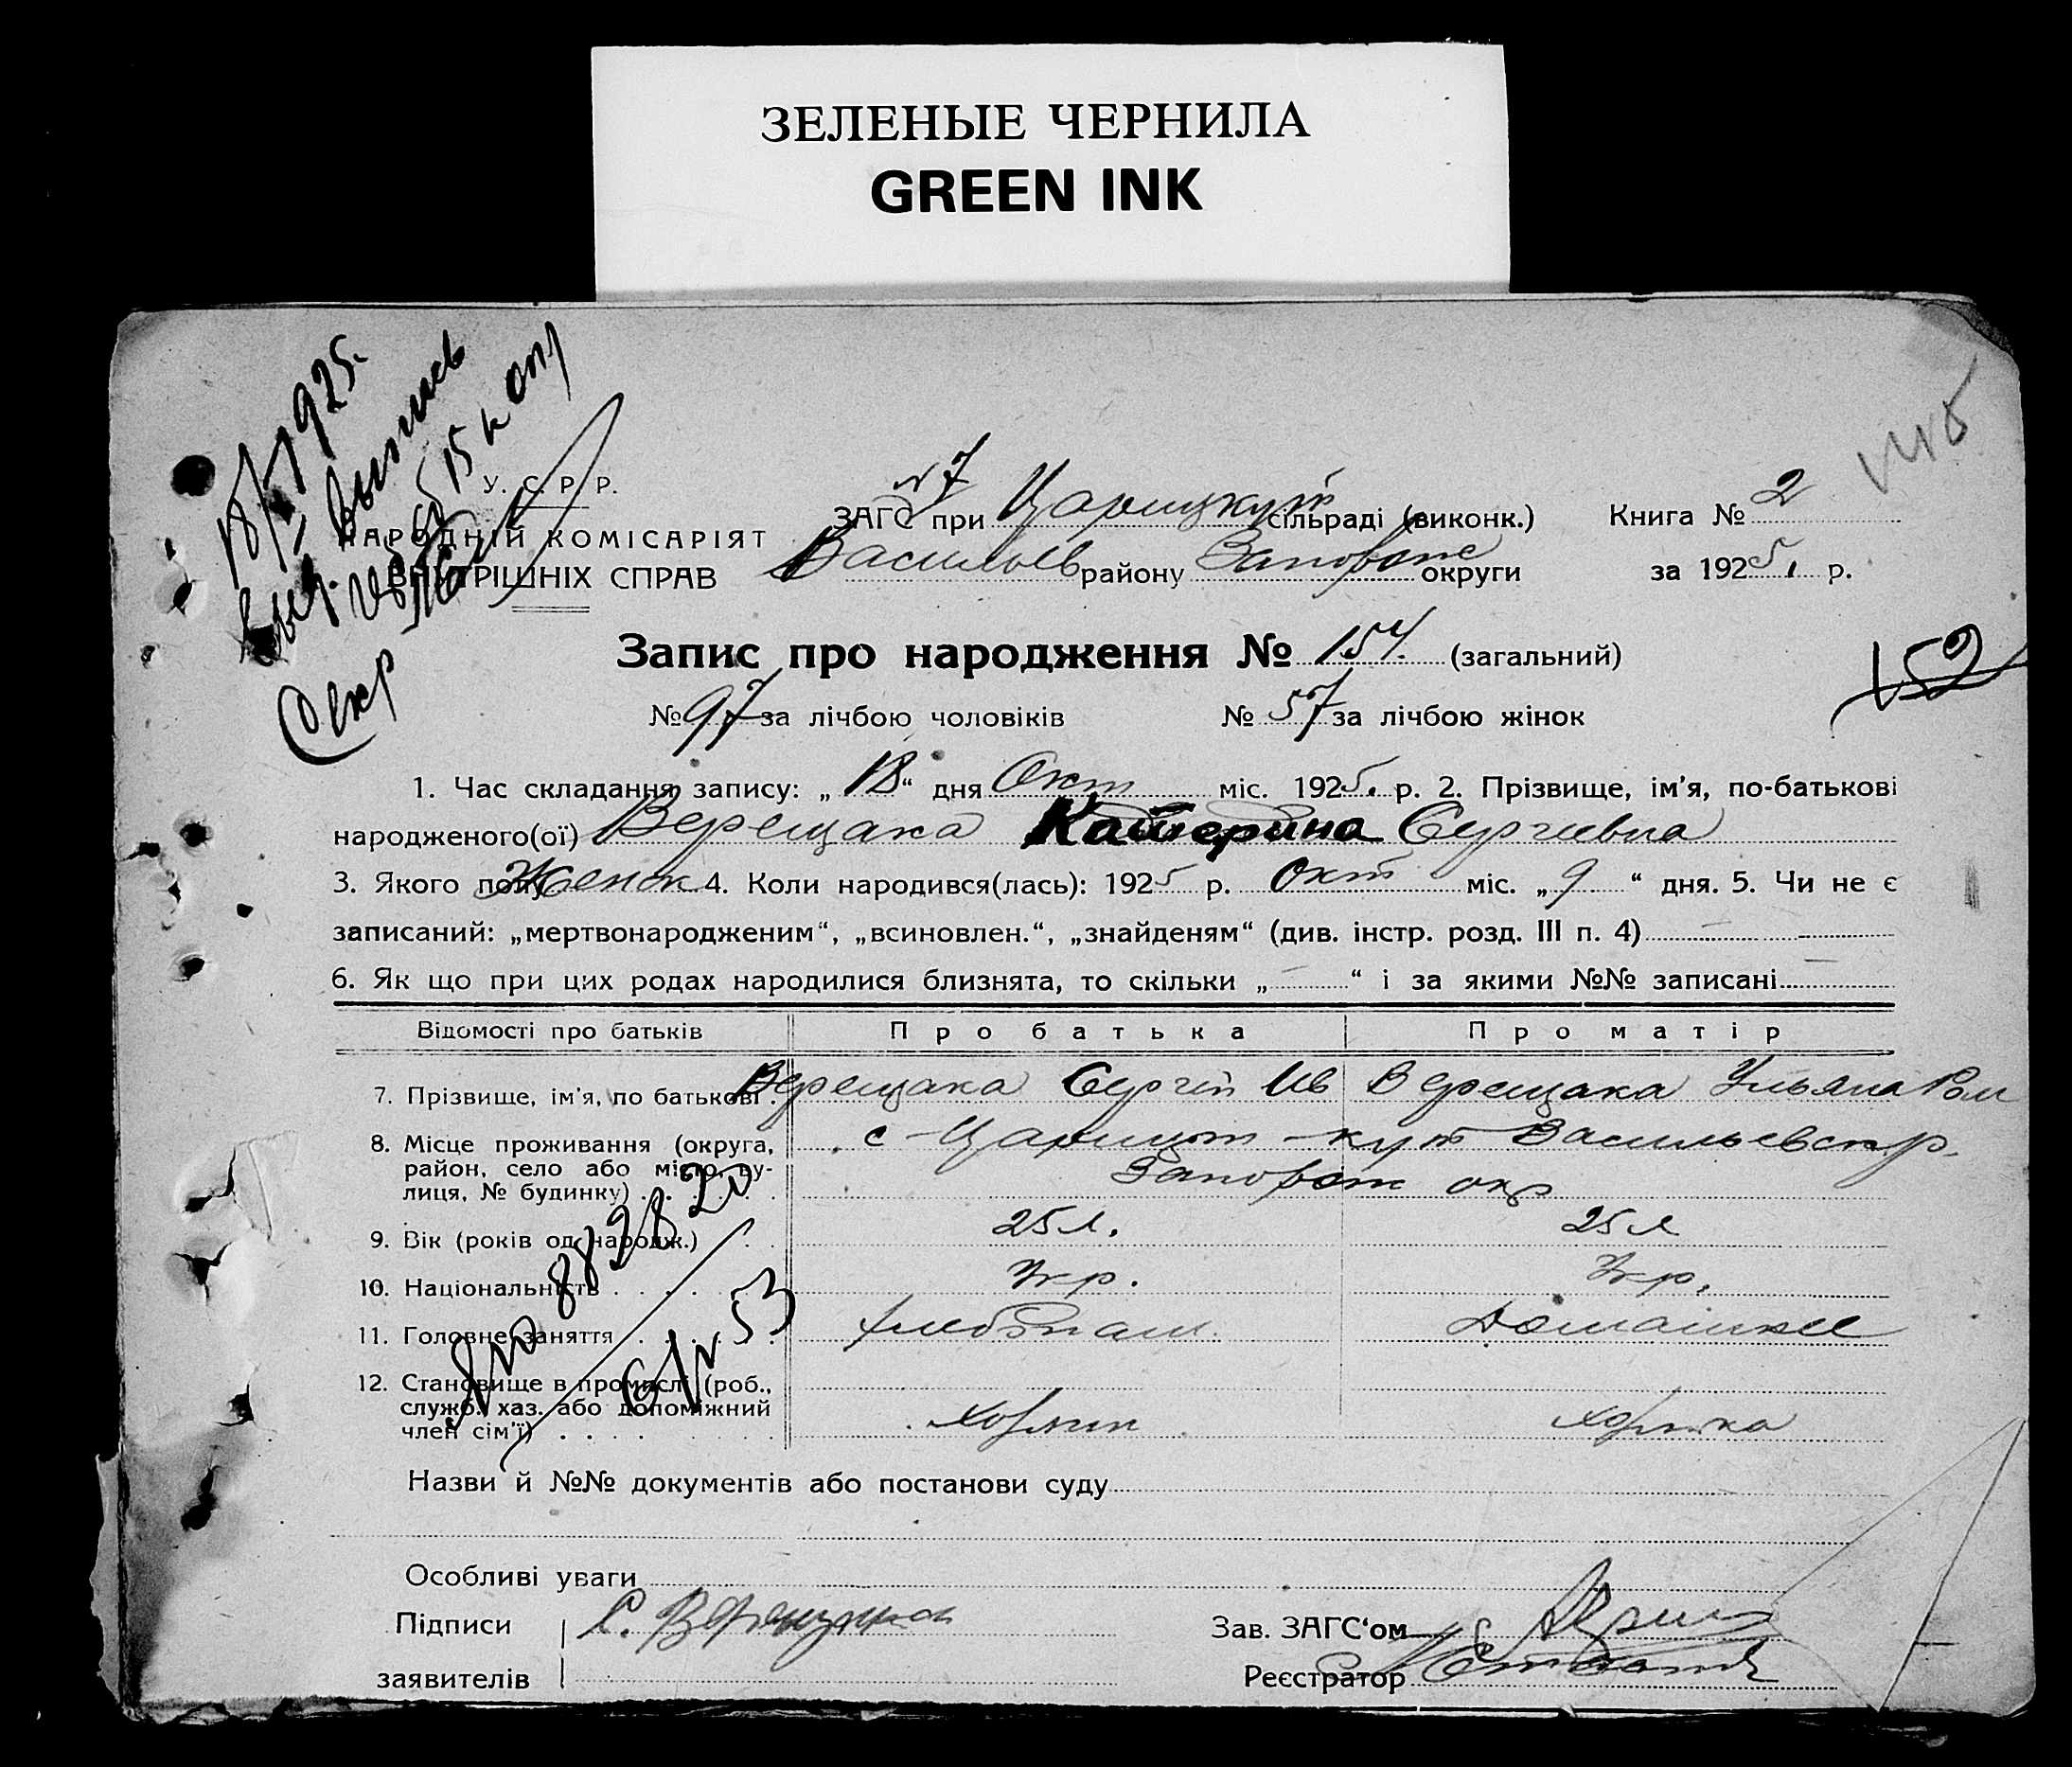 ЗЕЛЕНЫЕ ЧЕРНИЛА
GREEN INK
18/X 1925.
выд. выпись
15 к
Секр
У. С. Р. Р.
НАРОДНІЙ КОМІСАРІЯТ
ВНУТРІШНІХ СПРАВ
№7
ЗАГС при Царицкут сільраді (виконк.) Книга № 2
Васильев району Запорож округи за 1925. р.
152
Запис про народження № 154. (загальний)
№ 97 за лічбою чоловіків № 57 за лічбою жінок
1. Час складання запису: „18“ дня Окт міс. 1925. р. 2. Прізвище, ім’я, по-батькові
народженого(ої) Верещака Катерина Сергиевна
3. Якого полу Женск 4. Коли народився(лась): 1925 р. Окт міс. „9“ дня. 5. Чи не є
записаний: „мертвонародженим“, „всиновлен.“, „знайденям“ (див. інстр. розд. III п. 4) —
6. Як що при цих родах народилися близнята, то скільки „—“ і за якими №№ записані —
Відомості про батьків Про батька Про матір
7. Прізвище, ім’я, по батькові . Верещака Сергій Ив Верещака Ульяна Ром
8. Місце проживання (округа, с-Царицын-кут Васильевск р.
район, село або місто, ву-
лиця, № будинку) Запорож окр
9. Вік (років од народж.) 25 л. 25 л
10. Національність Укр. Укр.
11. Головне заняття хлебопаш. Домашнее
12. Становище в промислі (роб.,
служб. хаз. або допоміжний
член сім’ї) Хозяин хозяйка
882820
53
Назви й №№ документів або постанови суду
Особливі уваги
Підписи С. Верещака Зав. ЗАГС‘ом
заявителів Реєстратор